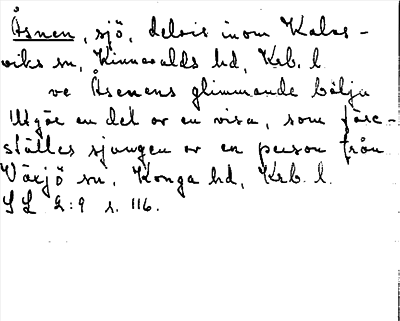 Åsnen, sjö, delvis inom Kalvs-
viks sn, Kinnevalds hd, Krb. l.
ve Åsenens glimmande bölja
Utgör en del av en visa, som före-
ställes sjungen av en person från
Växjö sn, Konga hd, Krb. l.
SL 2:9 s. 116.